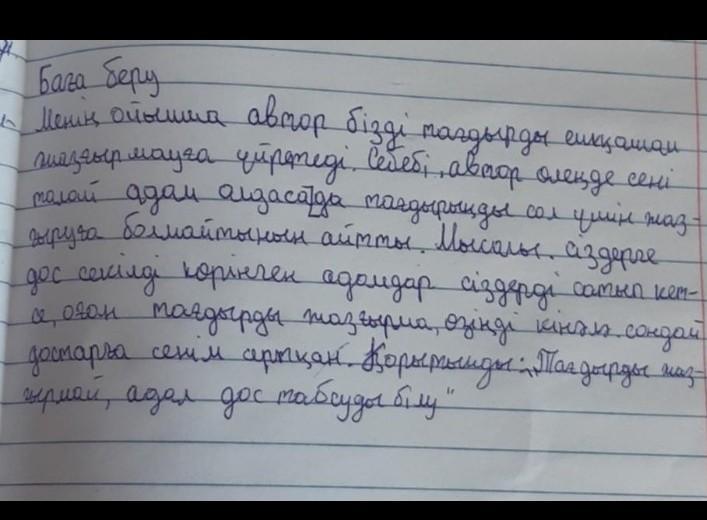 Баға беру
Менің ойымша автор бізді тағдырды ешқашан
жазғырмауға үйретеді. Себебі, автор өлеңде сені
талай адам алдасада тағдырыңды сол үшін жаз-
ғыруға болмайтынын айтты. Мысалы. сіздерге
дос секілді көрінген адамдар сіздерді сатып кет-
се, оған тағдырды жазғырма, өзіңді кінәлә сондай
достарға сенім артқан. Қорытынды: „Тағдырды жаз-
ғырмай, адал дос табсуды білу"